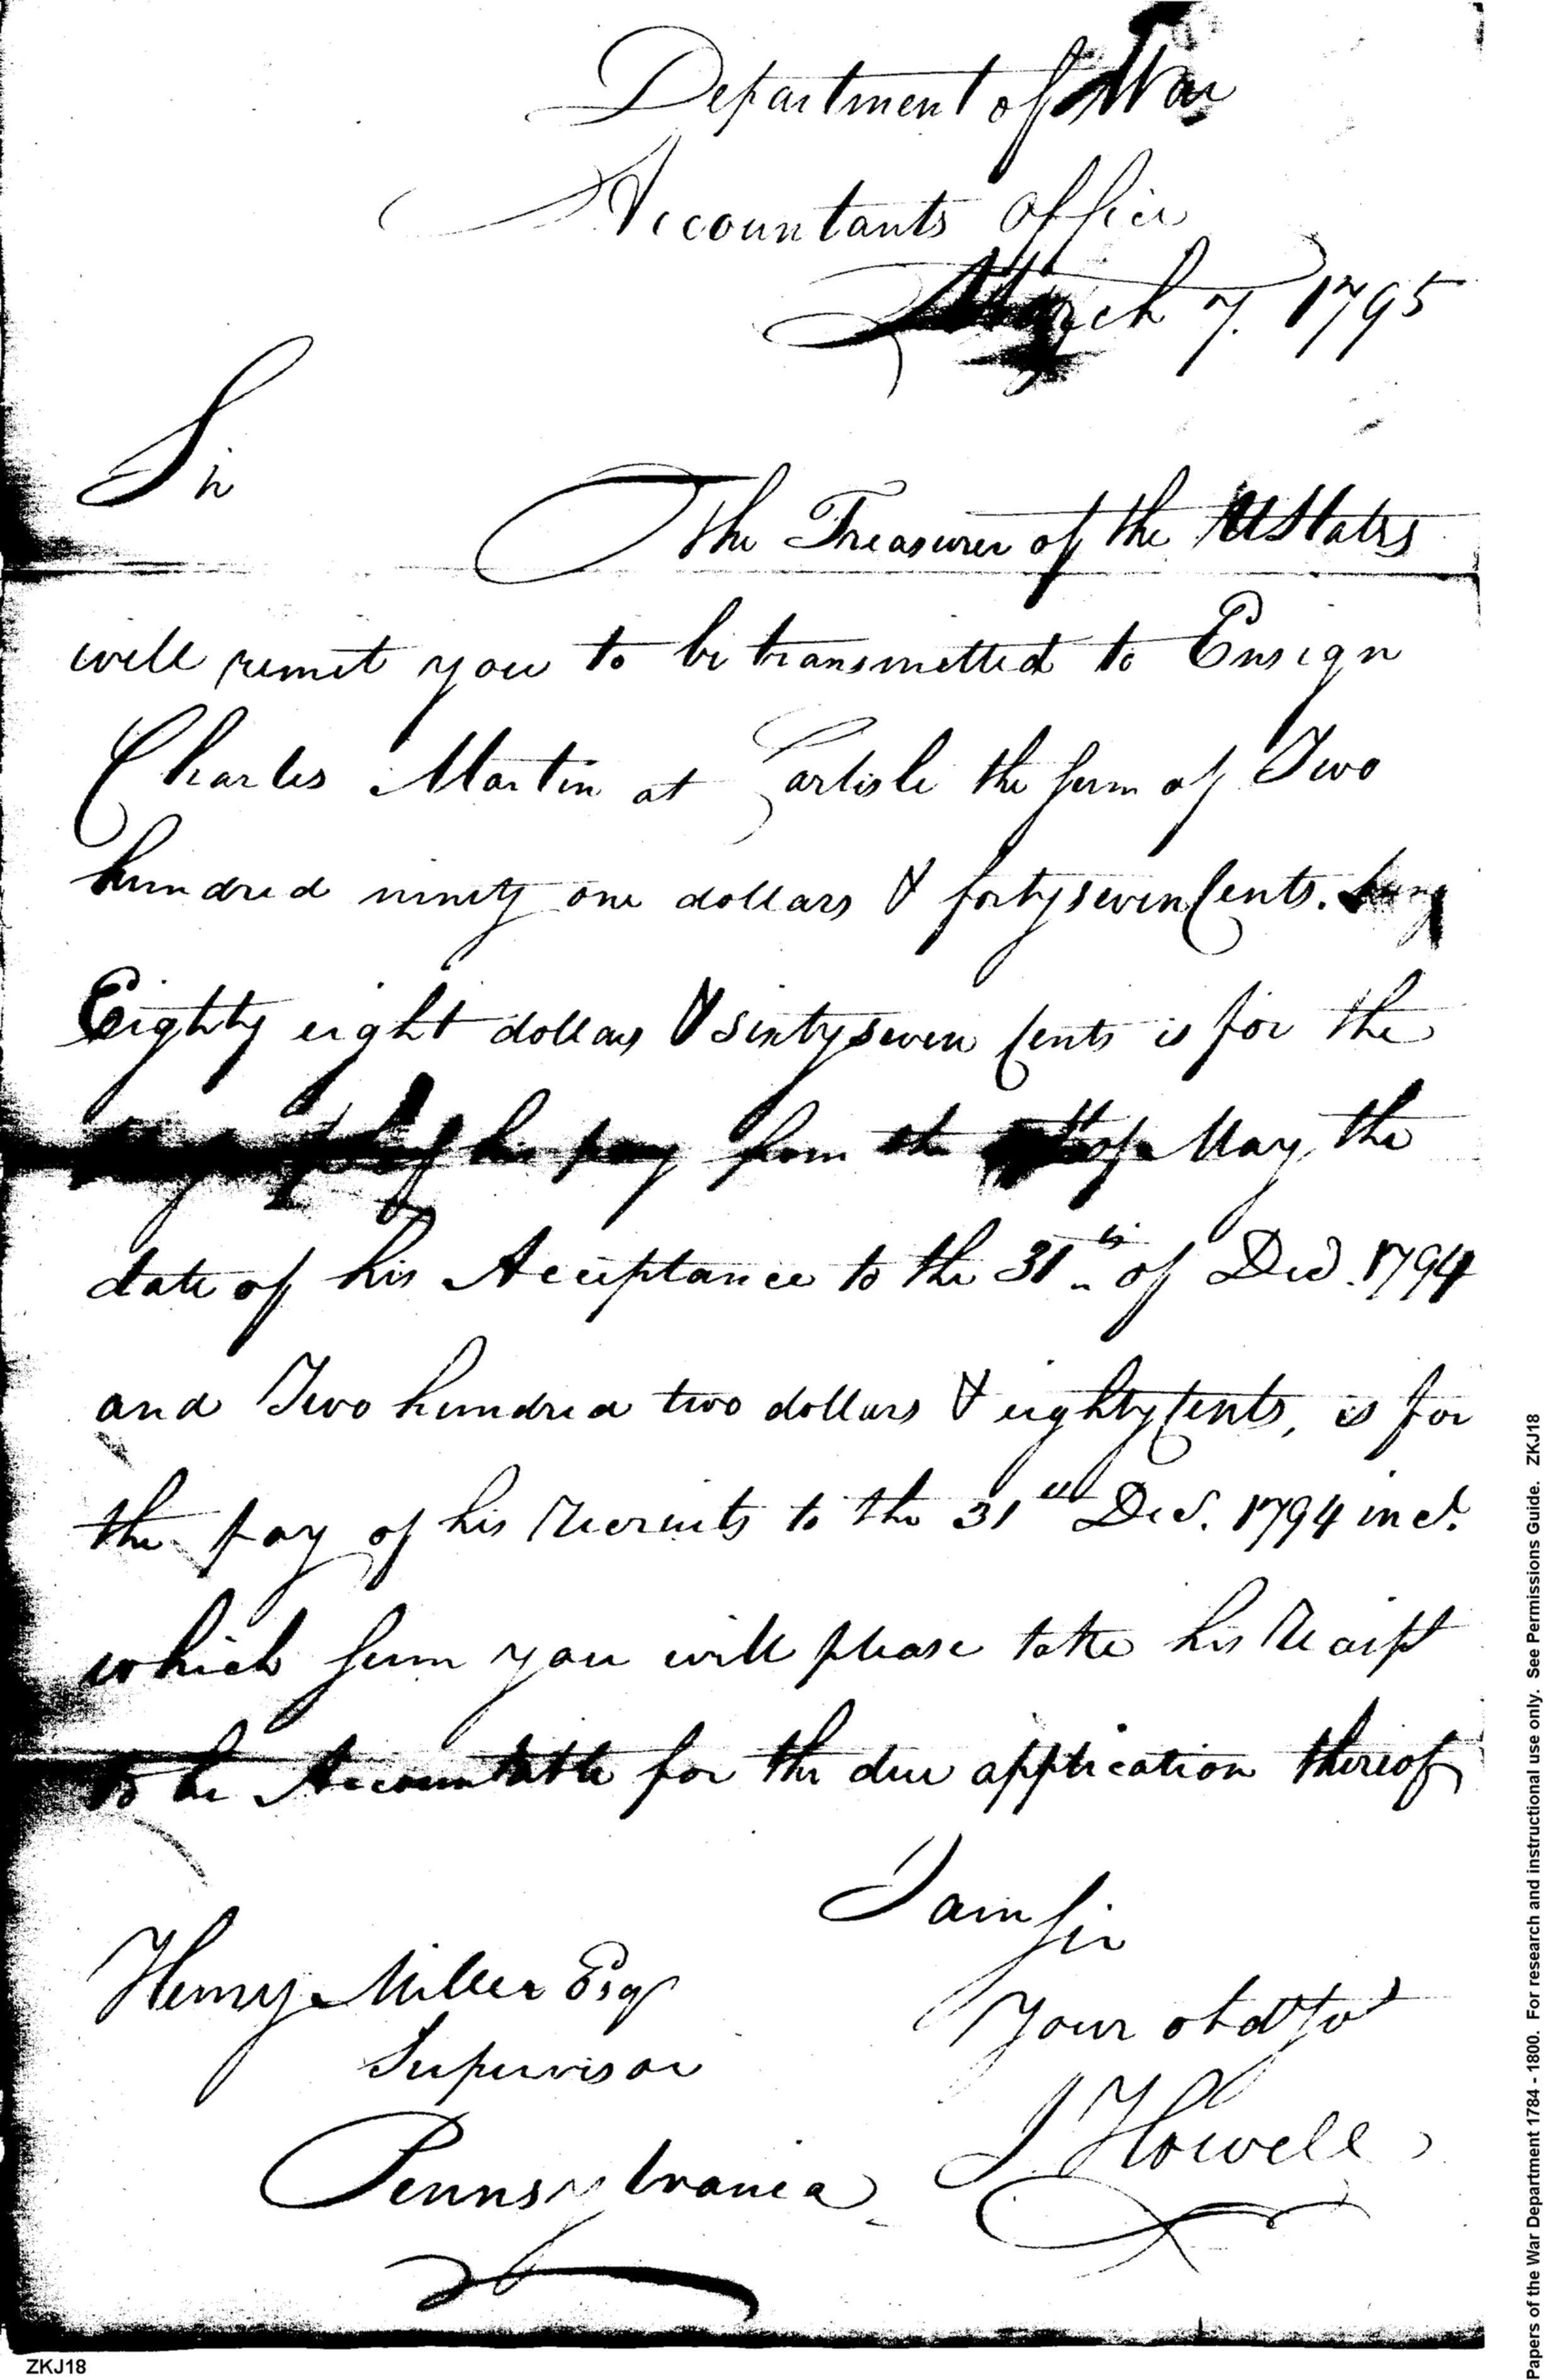 Department of War
Accountants Office
March 7. 1795
Sir
The Treasurer of the UStates
will remit you to be transmitted to Ensign
Charles Martin at Carlisle the sum of Two
hundred ninety one dollars & forty seven Cents.
Eighty eight dollars & sixty seven Cents is for the
of his pay from the of May, the
date of his Acceptance to the 31st of Decr. 1794
and Two hundred two dollars & eighty Cents, is for
the pay of his Recruits to the 31st Decr. 1794 incl.
which sum you will please take his Receipt
to be Accountable for the due application thereof
I am Sir
Your obdt Svt
J Howell
Henry Miller Esqr
Supervisor
Pennsylvania
Papers of the War Department 1784 - 1800. For research and instructional use only. See Permissions Guide. ZKJ18
ZKJ18